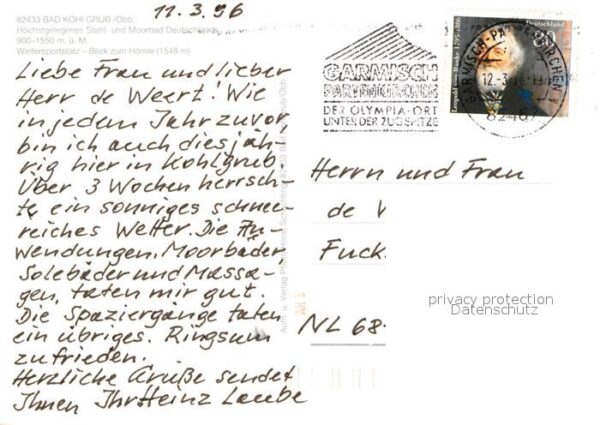 11.3.96
82433 BAD KOHLGRUB/Obb.
Höchstgelegenes Stahl- und Moorbad Deutschlands
900–1550 m. ü. M.
Wintersportplatz – Blick zum Hörnle (1548 m)
Liebe Frau und lieber
Herr de Weert! Wie
in jedem Jahr zuvor,
bin ich auch diesjäh-
rig hier in Kohlgrub.
Über 3 Wochen herrsch-
te ein sonniges schnee-
reiches Wetter. Die An-
wendungen, Moorbäder,
Solebäder und Massa-
gen, taten mir gut.
Die Spaziergänge taten
ein übriges. Ringsum
zufrieden.
Herzliche Grüße sendet
Ihnen Ihr Heinz Laube
Aufn. u. Verlag
GARMISCH
PARTENKIRCHEN
DER OLYMPIA-ORT
UNTER DER ZUGSPITZE
Deutschland
80
Leopold von Ranke 1795-1886
GARMISCH-PARTENKIRCHEN
12.-3.96
82467
Herrn und Frau
de
Fuck.
NL 68-
privacy protection
Datenschutz